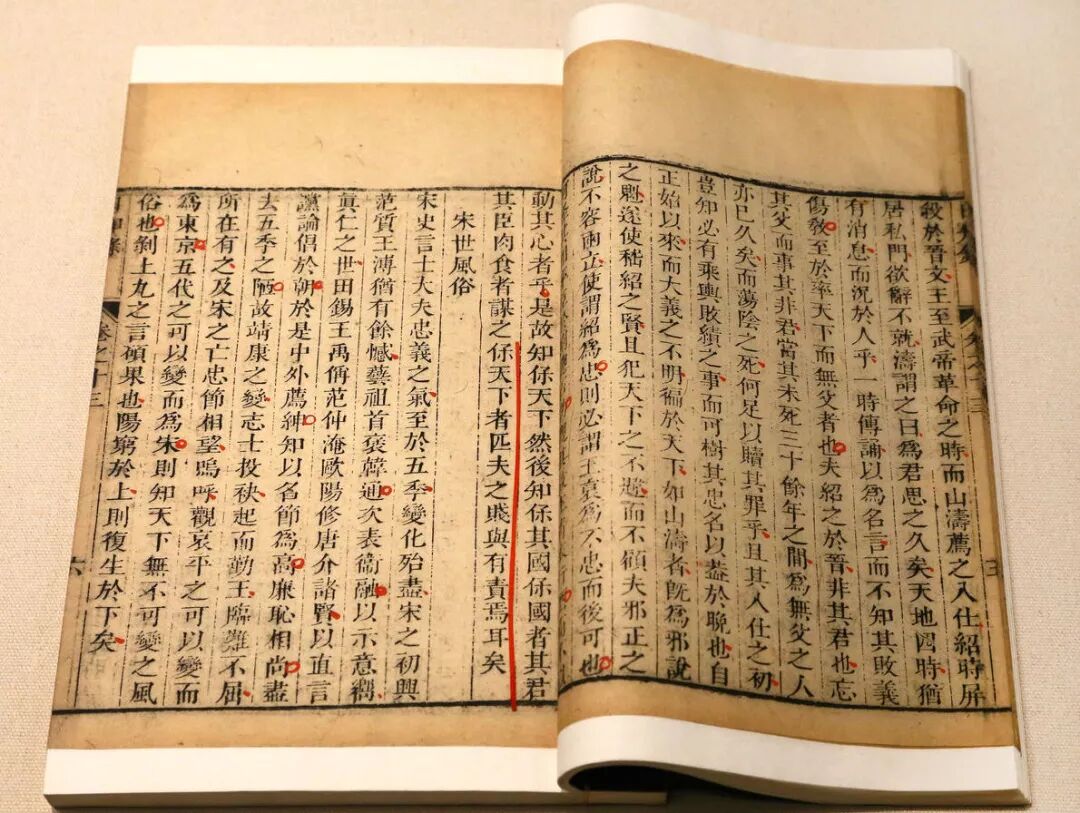 殺於晉文王至武帝革命之時而山濤薦之入仕紹時屏
居私門欲辭不就濤謂之曰為君思之久矣天地四時猶
有消息而況於人乎一時傳誦以為名言而不知其敗義
傷敎至於率天下而無父者也夫紹之於晉非其君也忘
其父而事其非君當其未死三十餘年之間為無父之人
亦已久矣而蕩陰之死何足以贖其罪乎且其入仕之初
豈知必有乘輿敗績之事而可樹其忠名以葢於晚也自
正始以來而大義之不明徧於天下如山濤者旣為邪說
之魁遂使嵇紹之賢且犯天下之不韙而不顧夫邪正之
說不容兩立使謂紹為忠則必謂王裒為不忠而後可也
動其心者乎是故知保天下然後知保其國保國者其君
其臣肉食者謀之保天下者匹夫之賤與有責焉耳矣
宋世風俗
宋史言士大夫忠義之氣至於五季變化殆盡宋之初興
范質王溥猶有餘憾藝祖首褒韓通次表衞融以示意嚮
眞仁之世田錫王禹偁范仲淹歐陽修唐介諸賢以直言
讜論倡於朝於是中外薦紳知以名節為高廉恥相尚盡
去五季之陋故靖康之變志士投袂起而勤王臨難不屈
所在有之及宋之亡忠節相望嗚呼觀哀平之可以變而
為東京五代之可以變而為宋則知天下無不可變之風
俗也剝上九之言碩果也陽窮於上則復生於下矣
卷之十三
六